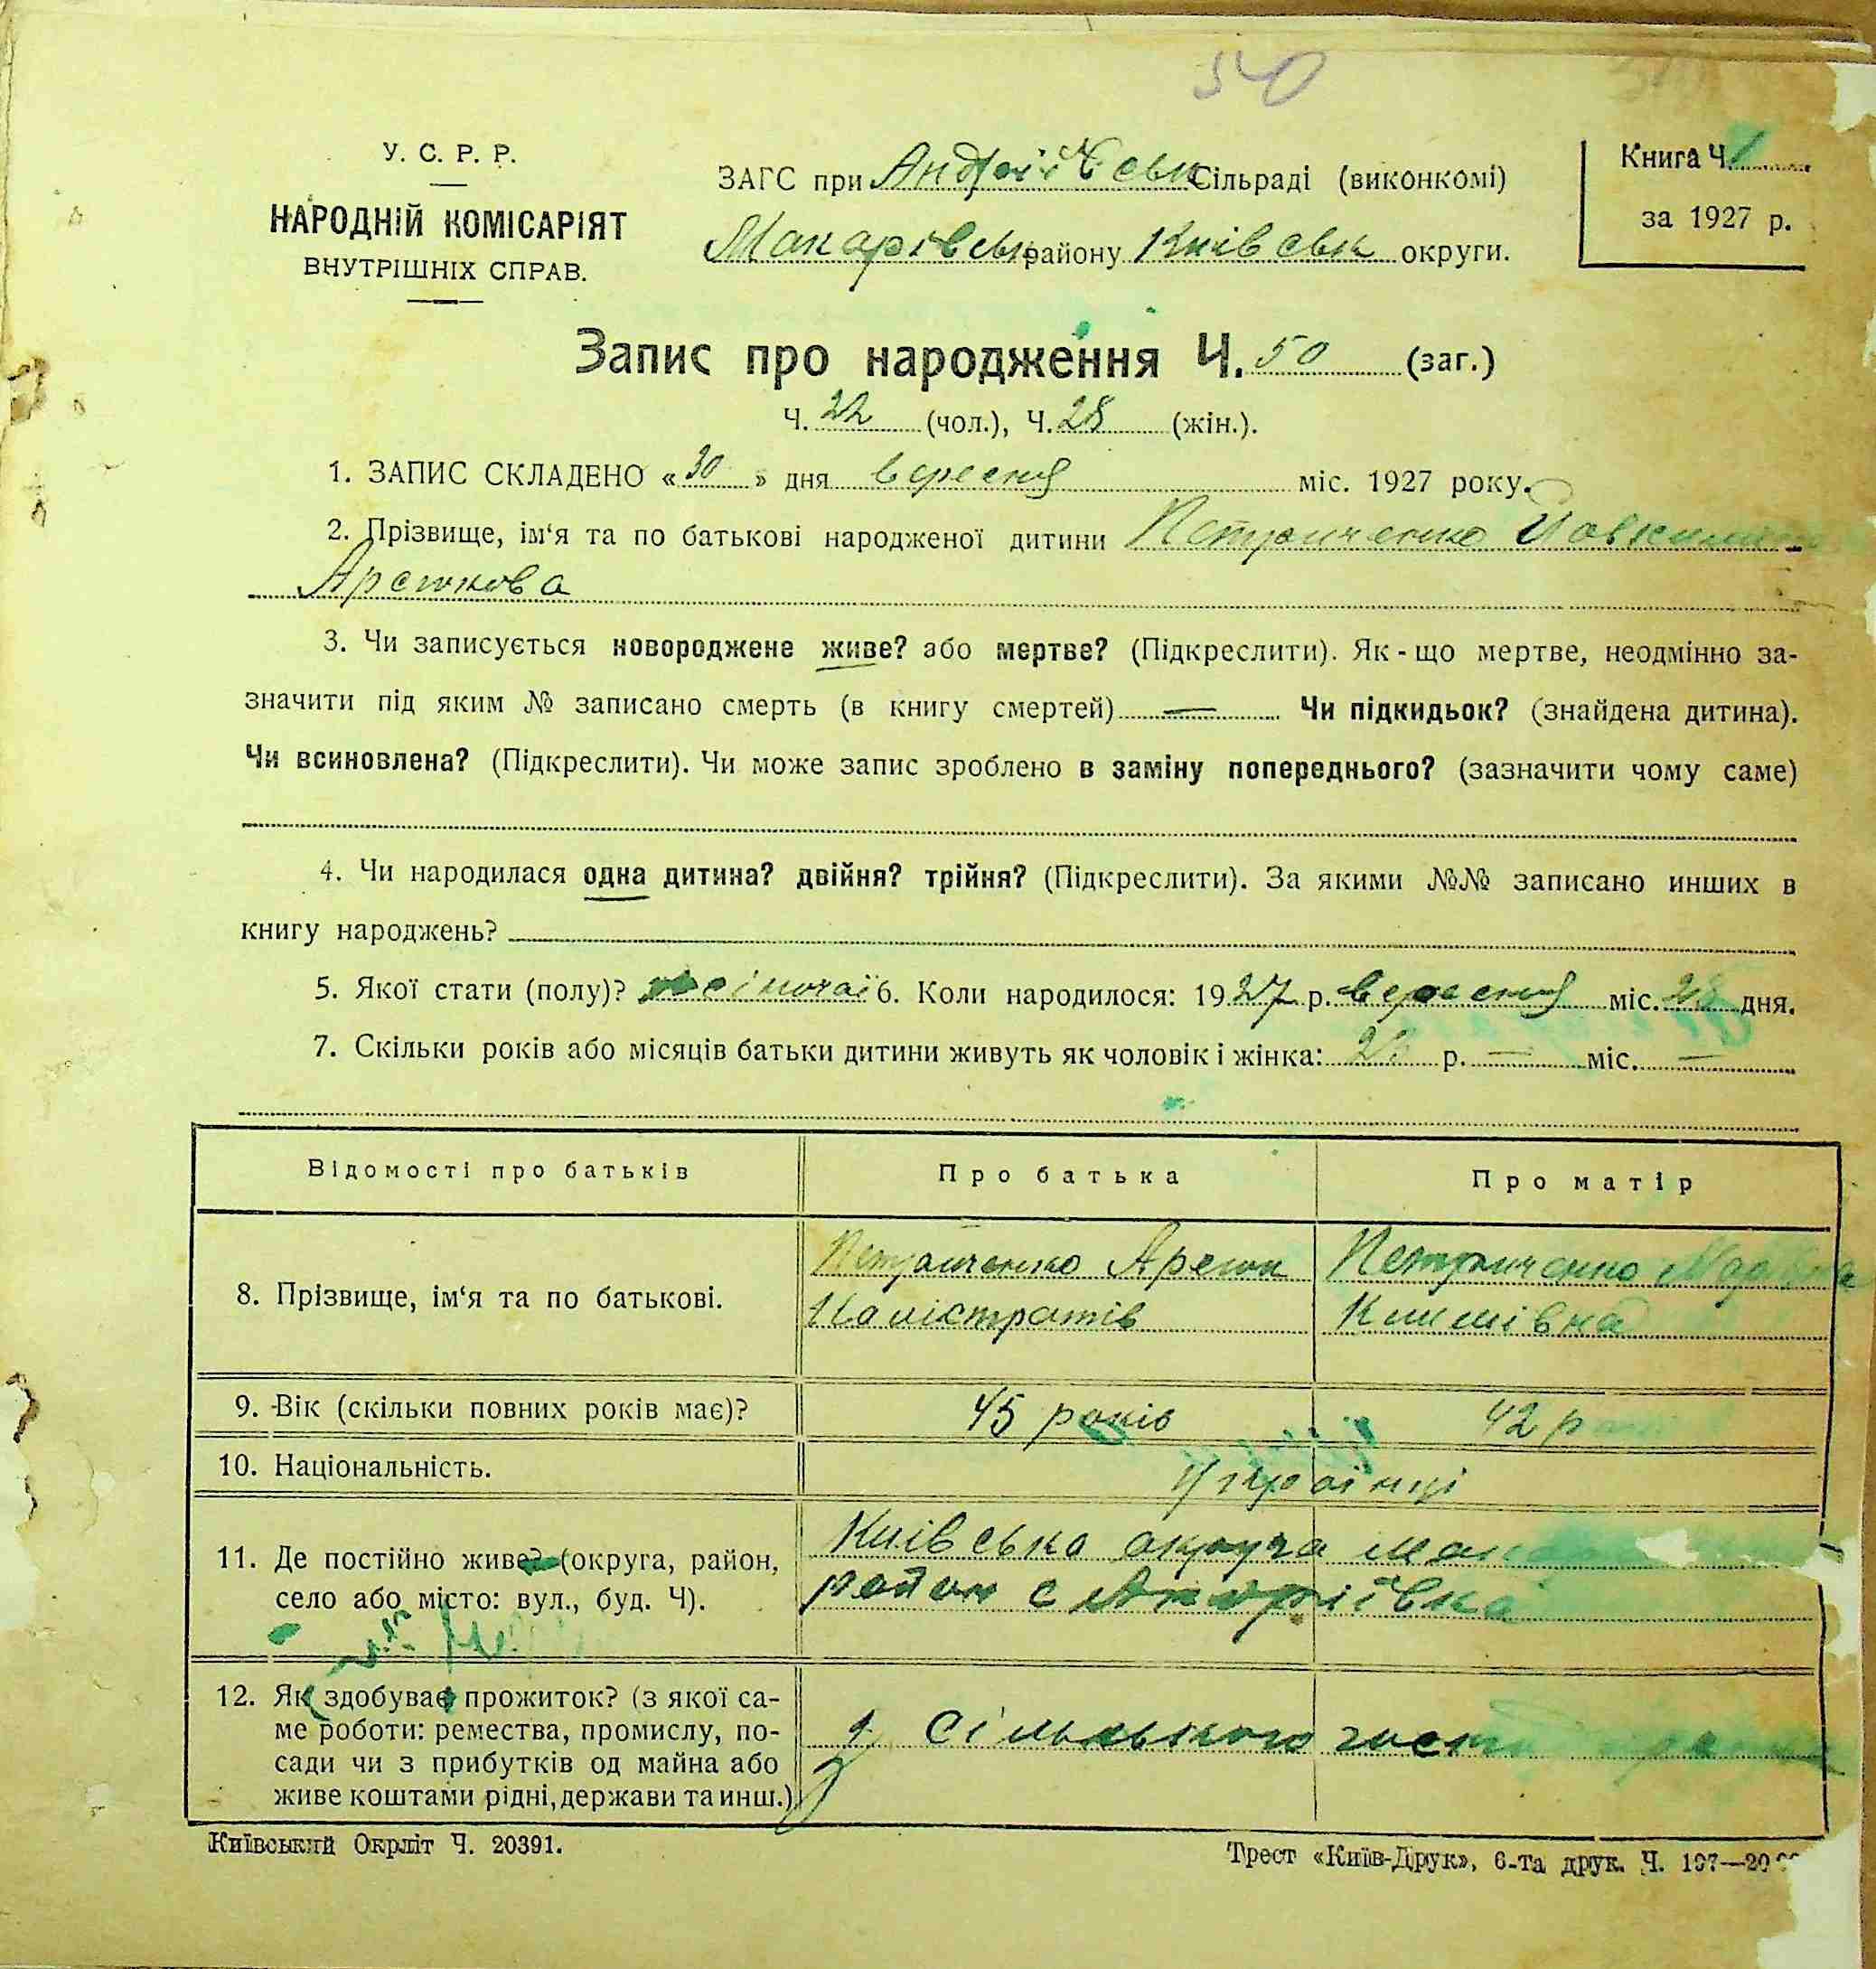 540
У. С. Р. Р.
НАРОДНІЙ КОМІСАРІЯТ
ВНУТРІШНІХ СПРАВ.
ЗАГС при Андріївськ Сільраді (виконкомі)
Макарівськ району Київськ округи.
Книга Ч. 1
за 1927 р.
Запис про народження Ч. 50 (заг.)
Ч. 22 (чол.), Ч. 28 (жін.).
1. ЗАПИС СКЛАДЕНО «30» дня вересня міс. 1927 року.
2. Прізвище, ім‘я та по батькові народженої дитини
3. Чи записується новороджене живе? або мертве? (Підкреслити). Як-що мертве, неодмінно за-
значити під яким № записано смерть (в книгу смертей) — Чи підкидьок? (знайдена дитина).
Чи всиновлена? (Підкреслити). Чи може запис зроблено в заміну попереднього? (зазначити чому саме)
4. Чи народилася одна дитина? двійня? трійня? (Підкреслити). За якими №№ записано инших в
книгу народжень?
5. Якої стати (полу)? жіночої 6. Коли народилося: 1927 р. вересня міс. 28 дня.
7. Скільки років або місяців батьки дитини живуть як чоловік і жінка: р. — міс. —
Відомості про батьків Про батька Про матір
8. Прізвище, ім‘я та по батькові.
Калістратів Климівна
9. Вік (скільки повних років має)? 45 років 42 р
10. Національність. Українці
11. Де постійно живе? (округа, район,
село або місто: вул., буд. Ч).
Київська округа
район с Андріївка
12. Як здобуває прожиток? (з якої са-
ме роботи: ремества, промислу, по-
сади чи з прибутків од майна або
живе коштами рідні, держави та инш.)
з сільського
Київський Окрліт Ч. 20391.
Трест «Київ-Друк», 6-та друк. Ч. 197—20